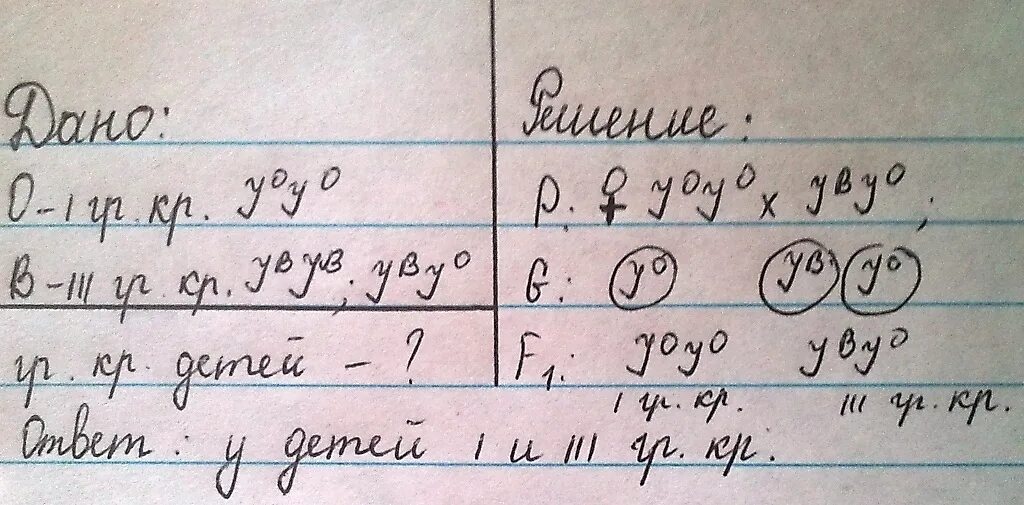 Дано:
О – I гр. кр. JᴼJᴼ
В – III гр. кр. JᴮJᴮ; JᴮJᴼ
гр. кр. детей – ?
Решение:
P: ♀ JᴼJᴼ x JᴮJᴼ;
G: Jᴼ Jᴮ Jᴼ
F₁: JᴼJᴼ JᴮJᴼ
I гр. кр. III гр. кр.
Ответ: у детей I и III гр. кр.